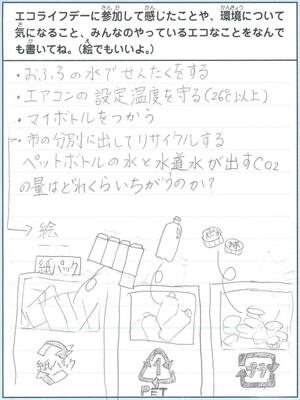 エコライフデーに参加して感じたことや、環境について
気になること、みんなのやっているエコなことをなんで
も書いてね。(絵でもいいよ。)
・おふろの水でせんたくをする
・エアコンの設定温度を守る(26℃以上)
・マイボトルをつかう
・市の分別に出してリサイクルする
ペットボトルの水と水道水が出すCO2
の量はどれくらいちがうのか?
→絵
紙パック
紙パック
1
PET
プラ